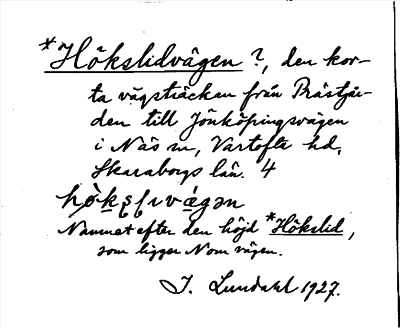 *Hökslidvägen ?, den kor-
ta vägsträckan från Prästgår-
den till Jönköpingsvägen
i Näs sn, Vartofta hd,
Skaraborgs län. 4
Namnet efter den höjd *Hökslid,
som ligger N om vägen.
J. Lundahl 1927.